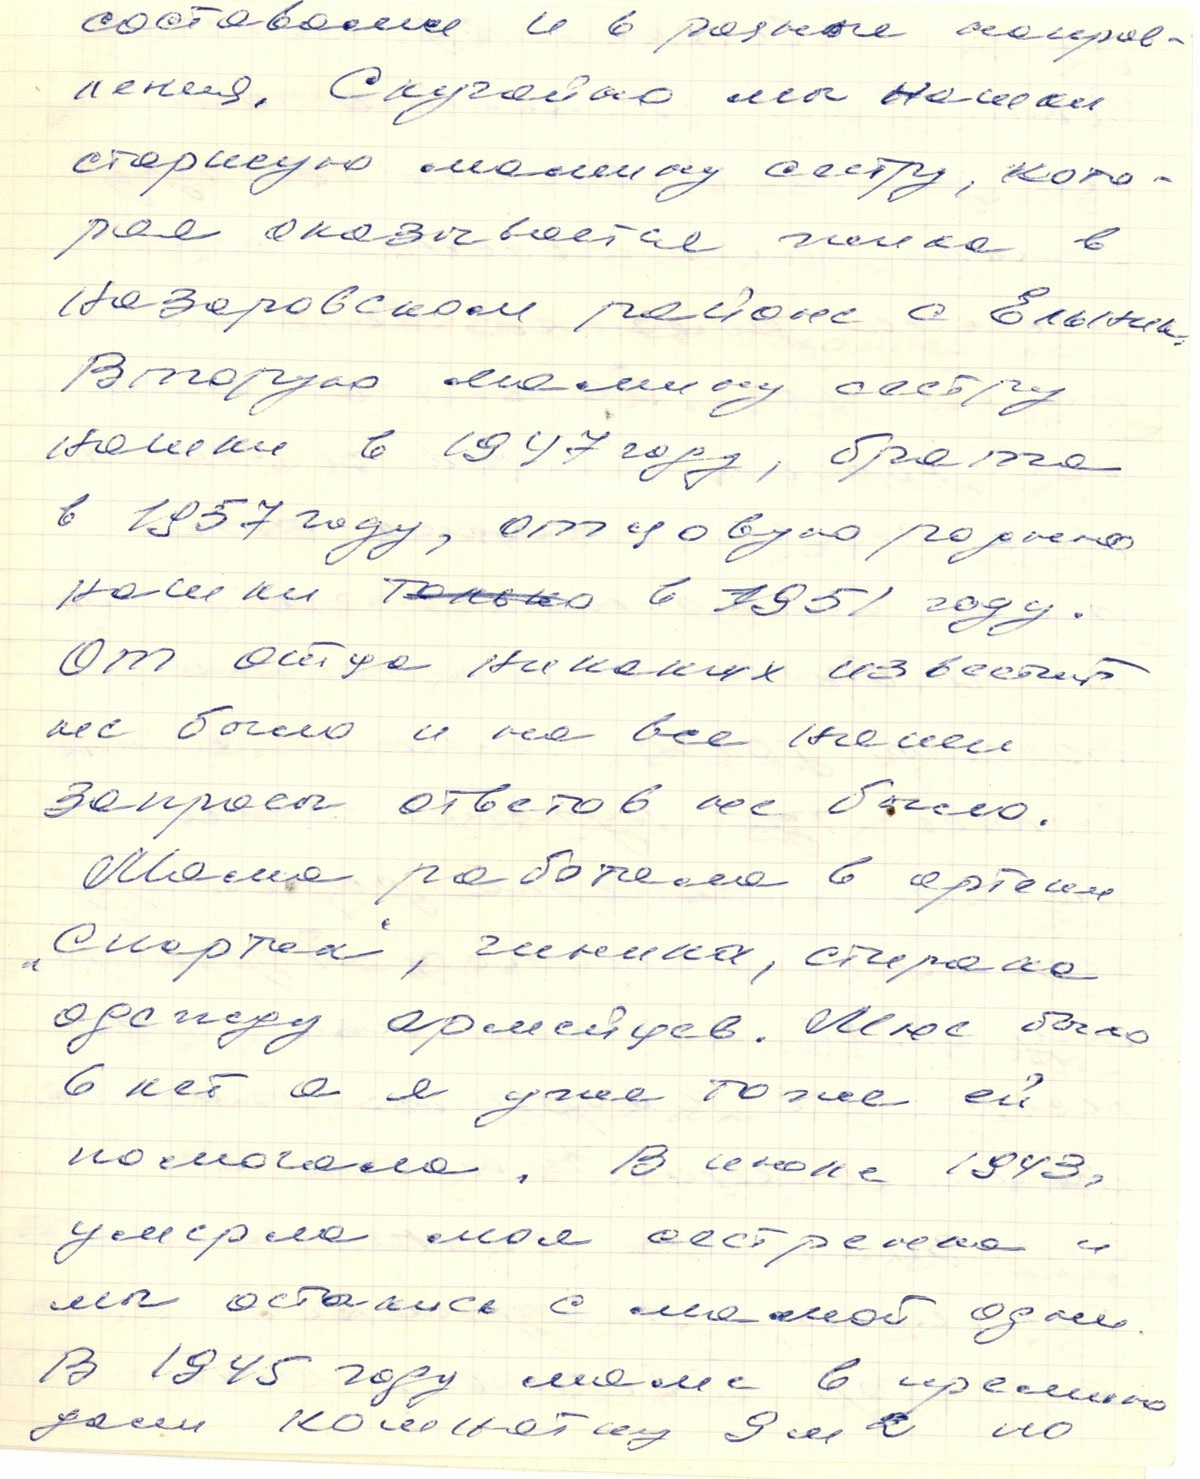 составами и в разные направ-
ления. Случайно мы нашли
старшую мамину сестру, кото-
рая оказывается жила в
Назаровском районе с Ельник.
Вторую мамину сестру
нашли в 1947 году, брата
в 1957 году, отцовую родню
нашли только в 1951 году.
От отца никаких известий
не было и на все наши
запросы ответов не было.
Мама работала в артели
„Спартак“, чинила, стирала
одежду армейцев. Мне было
6 лет а я уже тоже ей
помогала. В июне 1943,
умерла моя сестренка и
мы остались с мамой одни.
В 1945 году маме в премию
дали комнатку 9 м2 по